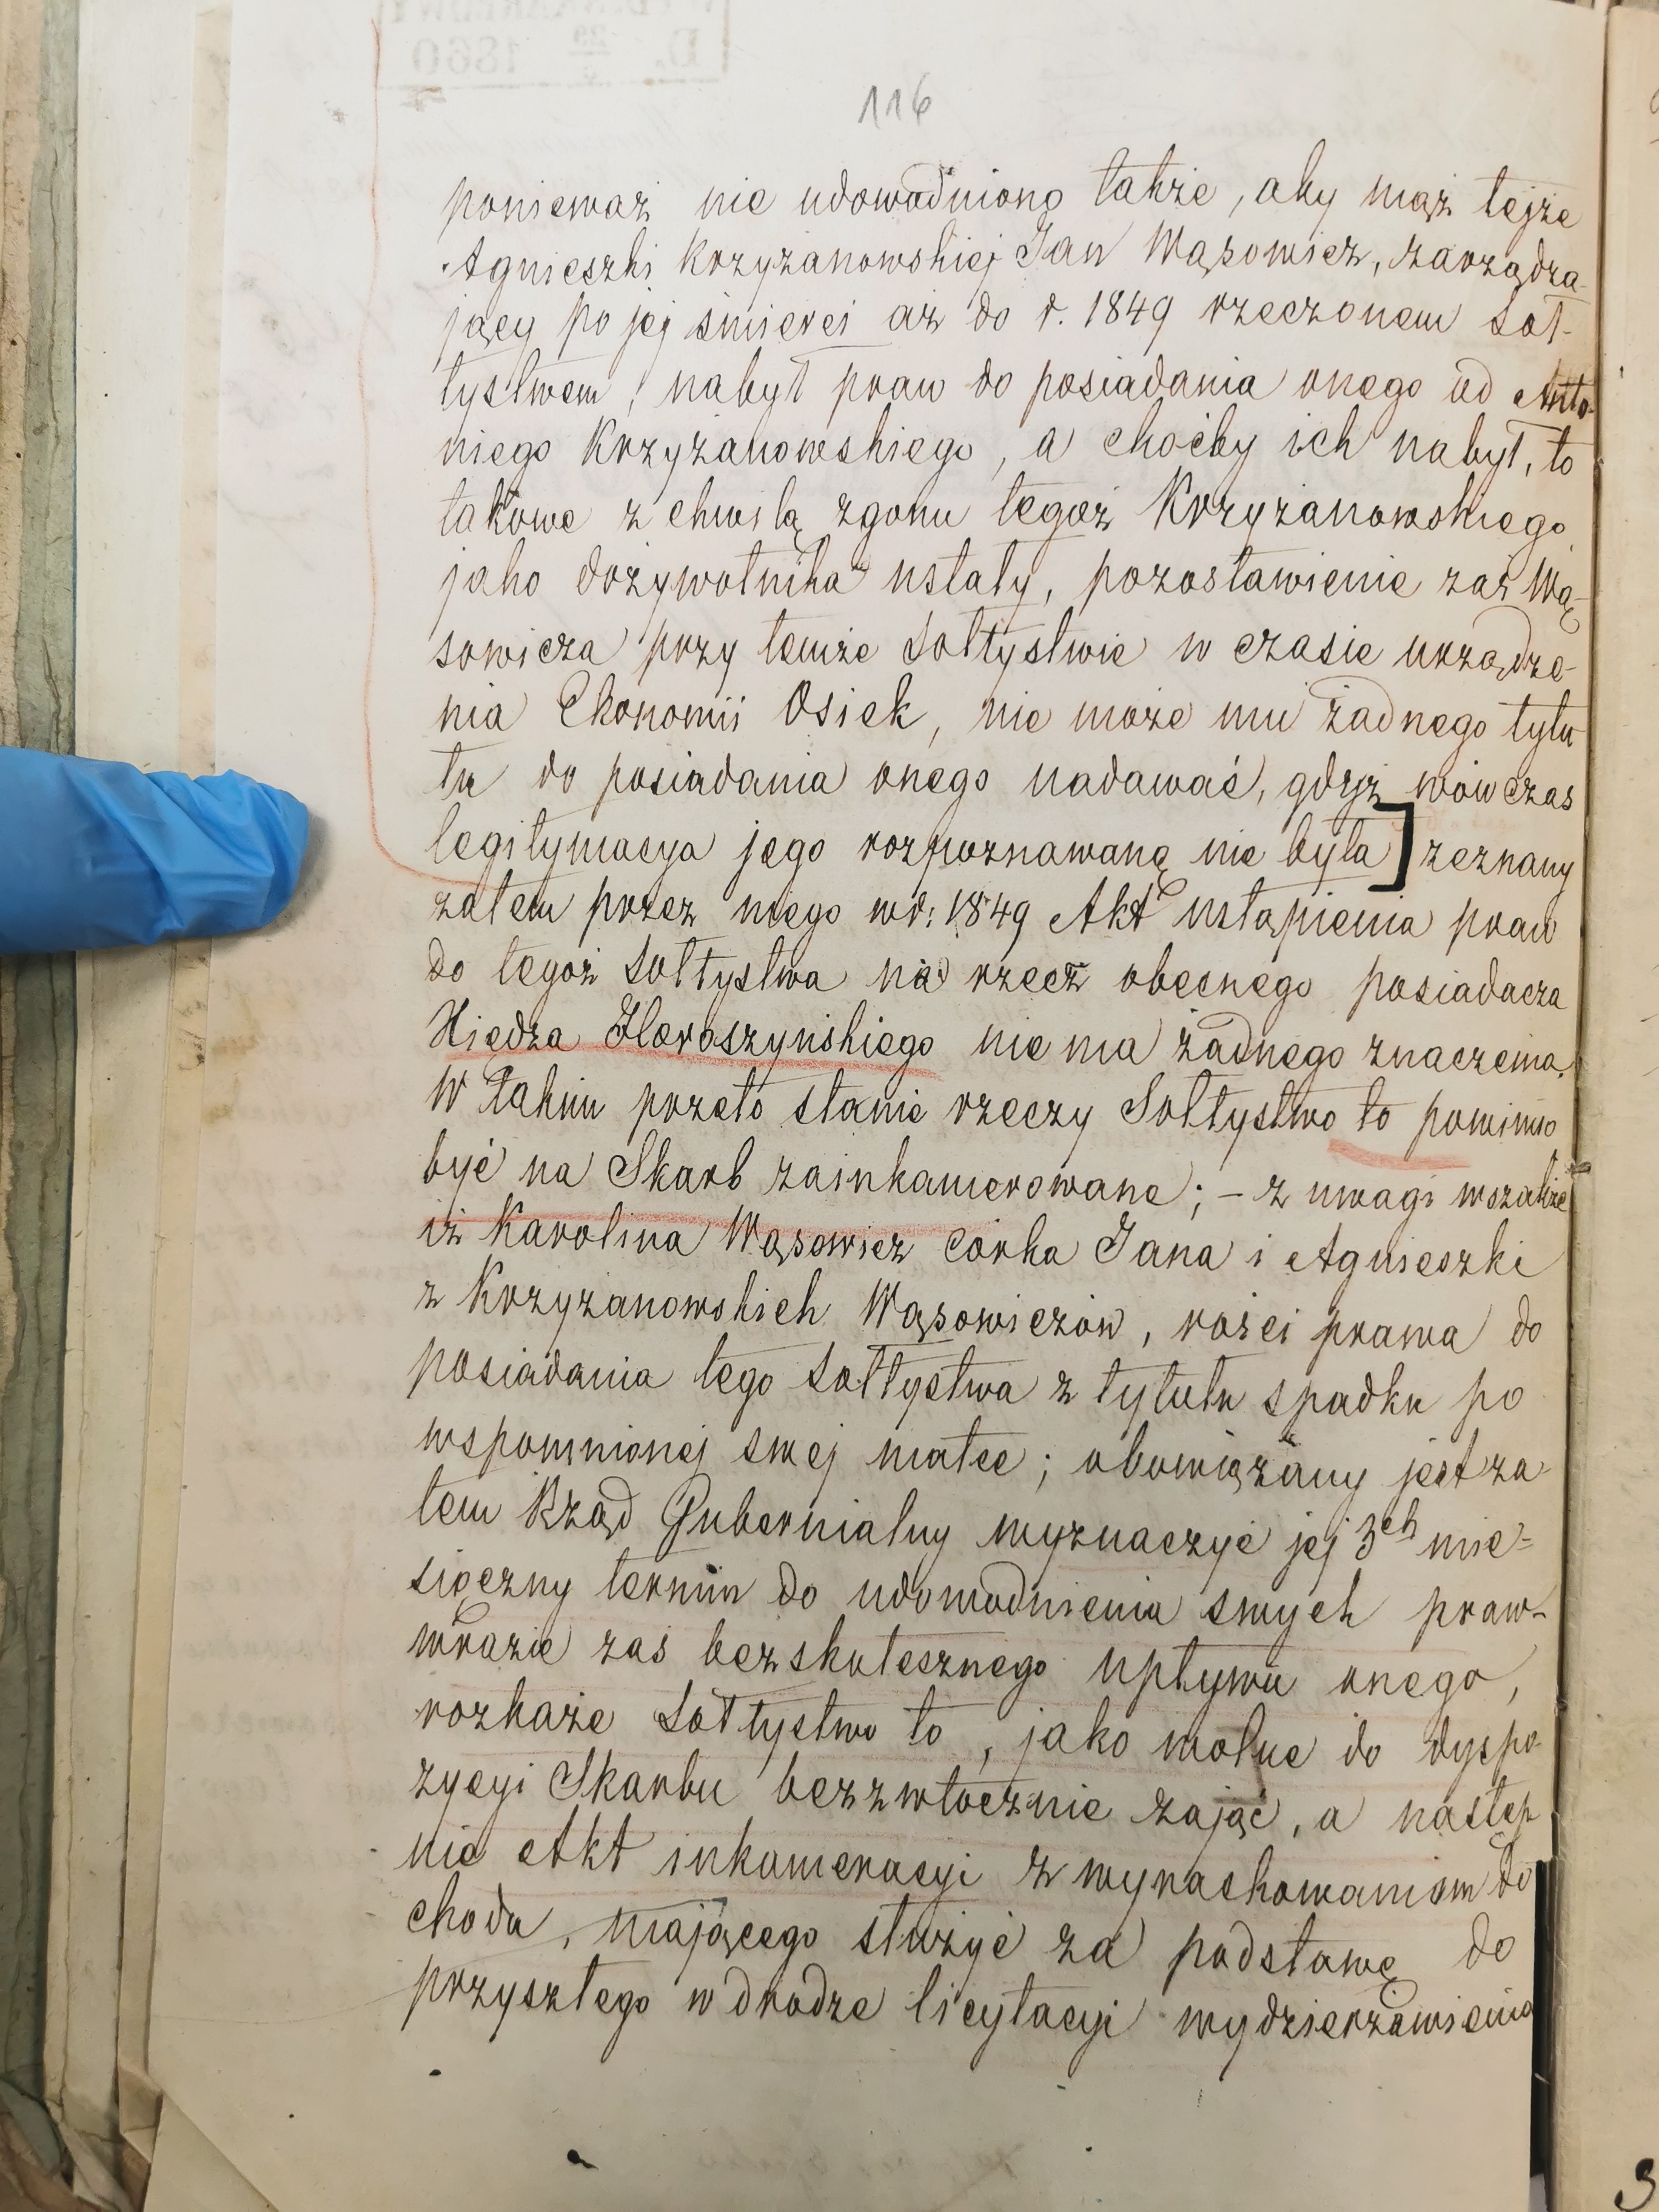 116
ponieważ nie udowodniono także, aby mąż tejże
Agnieszki Krzyżanowskiej Jan Wąsowicz, zarządza-
jący po jej śmierci aż do r. 1849 rzeczonem Soł-
tystwem, nabył praw do posiadania onego od Anto-
niego Krzyżanowskiego, a choćby ich nabył, to
takowe z chwilą zgonu tegoż Krzyżanowskiego
jako dożywotnika ustały, pozostawienie zaś Wą-
sowicza przy temże Sołtystwie w czasie urządze-
nia Ekonomii Osiek, nie może mu żadnego tytu-
łu do posiadania onego nadawać, gdyż wówczas
legitymacya jego rozpoznawaną nie była] zeznany
zatem przez niego w r: 1849 Akt ustąpienia praw
do tegoż Sołtystwa na rzecz obecnego posiadacza
Xiędza Horoszyńskiego nie ma żadnego znaczenia.
W takim przeto stanie rzeczy Sołtystwo to powinno
być na Skarb zainkamerowane; – z uwagi wszakże
iż Karolina Wąsowicz córka Jana i Agnieszki
z Krzyżanowskich Wąsowiczów, rości prawa do
posiadania tego Sołtystwa z tytułu spadku po
wspomnionej swej matce; obowiązany jest za-
tem Rząd Gubernialny wyznaczyć jej 3ch mie=
sięczny termin do udowodnienia swych praw-
wrazie zaś bezskutecznego upływu onego,
rozkaże Sołtystwo to, jako wolne do dyspo-
zycyi Skarbu bezzwłocznie zająć, a nastep
nie Akt inkameracyi z wyrachowaniem do
chodu, mającego służyć za podstawę do
przyszłego w drodze licytacyi wydzierżawienia